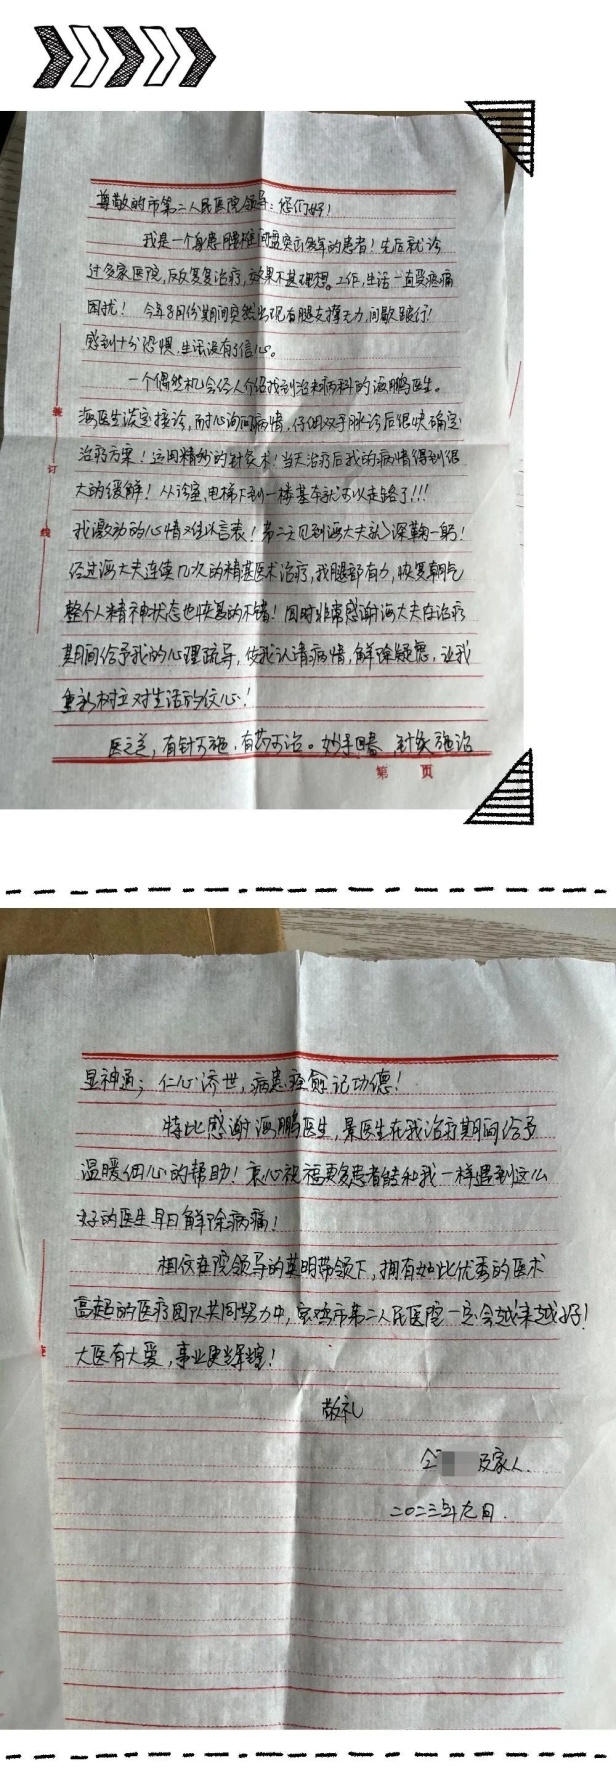 尊敬的市第二人民医院领导：您们好！
我是一个身患腰椎间盘突出多年的患者！先后就诊
过多家医院，反反复复治疗，效果不甚理想。工作，生活一直受疼痛
困扰！今年8月份期间突然出现右腿支撑无力，间歇跛行！
感到十分恐惧，生活没有了信心。
一个偶然机会经人介绍找到治未病科的海鹏医生。
海医生淡定接诊，耐心询问病情，仔细双手脉诊后很快确定
治疗方案！运用精妙的针灸术！当天治疗后我的病情得到很
大的缓解！从诊室，电梯下到一楼基本就可以走路了！！！
我激动的心情难以言表！第二天见到海大夫就深鞠一躬！
经过海大夫连续几次的精湛医术治疗，我腿部有力，恢复朝气
整个人精神状态也恢复的不错！同时非常感谢海大夫在治疗
期间给予我的心理疏导，使我认清病情，解除疑虑，让我
重新树立对生活的信心！
医之道，有针可施，有药可治。妙手回春，针灸施治
装
订
线
第 页
显神通；仁心济世，病患痊愈记功德！
特此感谢海鹏医生，是医生在我治疗期间给予
温暖细心的帮助！衷心祝福更多患者能和我一样遇到这么
好的医生早日解除病痛！
相信在院领导的英明带领下，拥有如此优秀的医术
高超的医疗团队共同努力中，宝鸡市第二人民医院一定会越来越好！
大医有大爱，事业更辉煌！
敬礼
及家人.
二〇二三年九月.